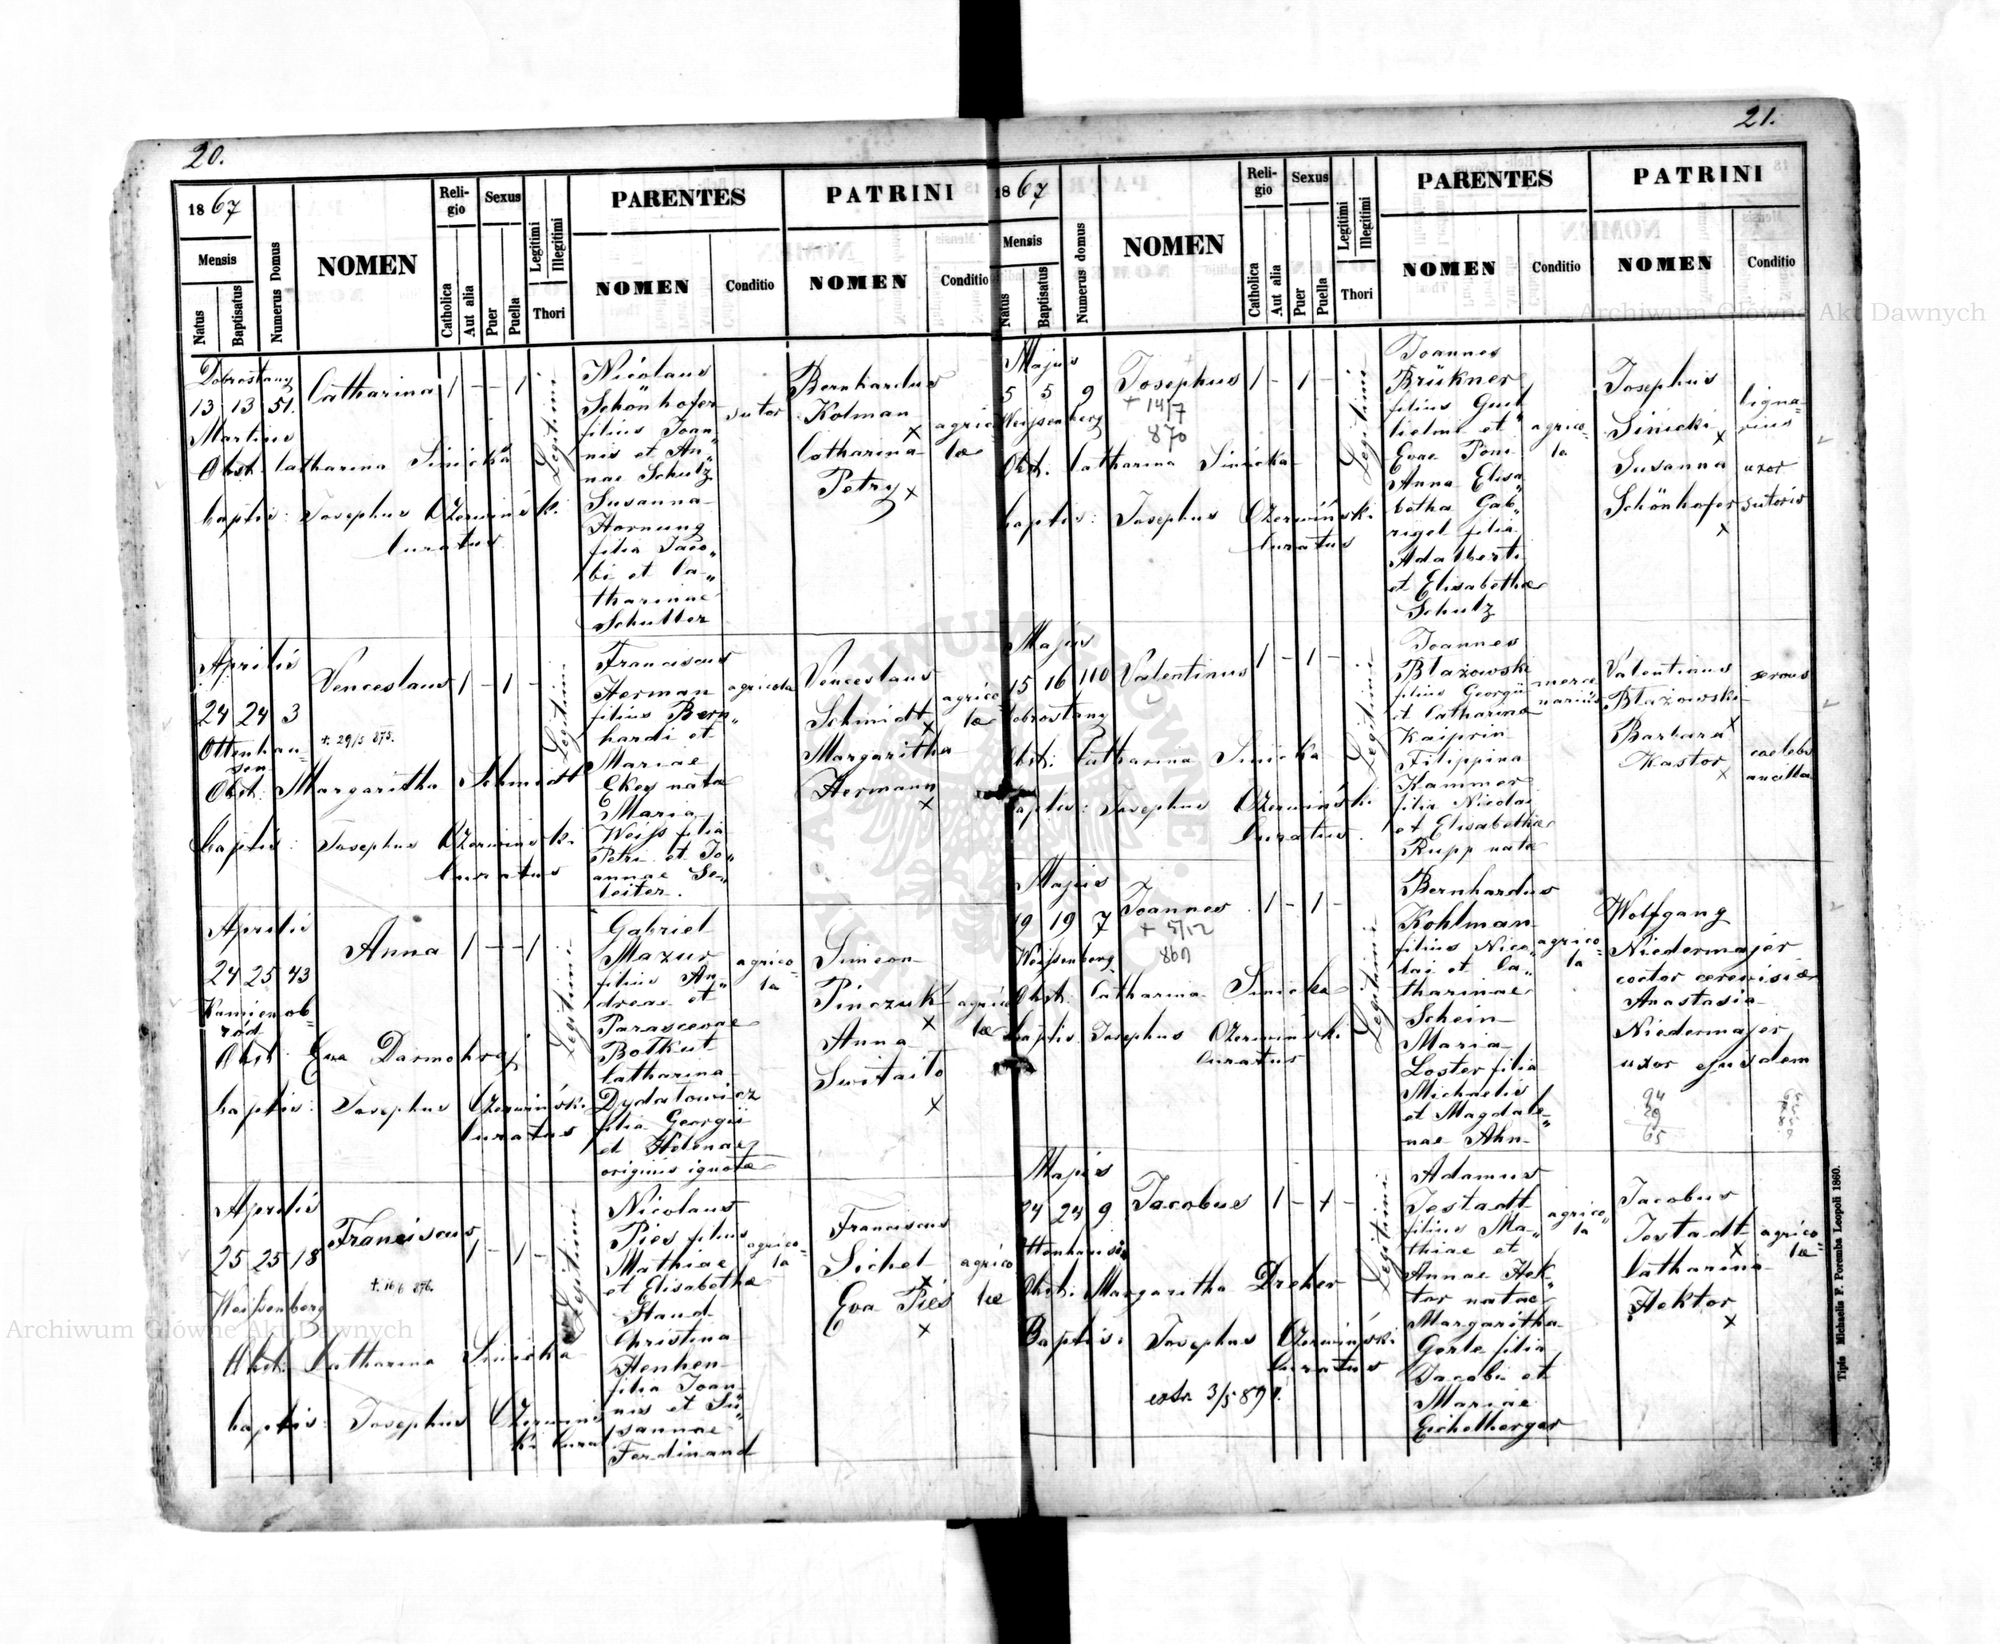 20.
1867
Mensis
Natus
Baptisatus
Numerus Domus
NOMEN
Reli-
gio
Catholica
Aut alia
Sexus
Puer
Puella
Legitimi
Illegitimi
Thori
PARENTES
NOMEN
Conditio
PATRINI
NOMEN
Conditio
Dobrostany
13 13 51.
Martius
Catharina 1 - - 1
Legitimi
Nicolaus
Schönhofer
filius Joan„
nis et An„
nae Schulz
Susanna
Hornung
filia Jaco„
bi et Ca„
tharinae
Schutter
sutor
Bernhardus
Kolman
x
Catharina
Petry x
agrico
lae
Obst. Catharina Sinicka
baptis: Josephus Czerwińsk.
Curatus
Aprilis
24 24 3
Ottenhau-
sen
Venceslaus 1 - 1 -
+. 29/5 873.
Legitimi
Franciscus
Herman
filius Bern„
hardi et
Mariae
Ekey nata
Maria
Weiss filia
Petri et Jo„
annae Se„
leiter.
agricola
Venceslaus
Schmidt
x
Margaritha
Hermann
x
agrico
lae
Obst: Margaritha Schmidt
baptis: Josephus Czerwinsk.
Curatus
Aprilis
24 25 43
Kamienob-
ród
Anna 1 - - 1
Legitimi
Gabriel
Mazur
filius An„
dreas et
Parascevae
Botkut
Catharina
Dydatowicz
filia Georgii
et Helenae
originis ignotae
agrico-
la
Simeon
Pinczuk
x
Anna
Switaito
x
agrico
lae
Obst: Eva Darmohraj
baptis: Josephus Czerwińsk.
Curatus
Aprilis
25 25 18
Weissenberg
Franciscus 1 - 1 -
+. 16/6 876.
Legitimi
Nicolaus
Pies filius
Mathiae
et Elisabethae
Staud
Christina
Henhen
filia Joan„
nis et Su„
sannae
Ferdinand
agrico-
la
Franciscus
Sichel
x
Eva Pies
x
agrico
lae
Obst. Catharina Sinicka
baptis: Josephus Czerwins
ki Curat
21.
1867
Mensis
Natus
Baptisatus
Numerus domus
NOMEN
Reli-
gio
Catholica
Aut alia
Sexus
Puer
Puella
Legitimi
Illegitimi
Thori
PARENTES
NOMEN
Conditio
PATRINI
NOMEN
Conditio
Majus
5 5 9
Weissenberg
Josephus 1 - 1 -
+ 14/7
870
Legitimi
Joannes
Brükner
filius Guil
lielmi et
Evae Poni
Anna Elisa„
betha Gab„
rigel filia
Adalberti
et Elisabethae
Schulz
agrico-
la
Josephus
Sinicki
x
Susanna
Schönhofer
x
ligna-
rius
uxor
sutoris
Obst. Catharina Sinicka
baptis: Josephus Czerwińsk.
Curatus
Majus
15 16 110
Dobrostany
Valentinus 1 - 1 -
Legitimi
Joannes
Btażowski
filius Georgii
et Catharina
Kaiprin
Filippina
Kammer
filia Nicolai
et Elisabethae
Rupp nata
merce
narius
Valentinus
Btażowski
x
Barbara
Kastor
x
servus
caelebs
ancilla
Obst: Catharina Sinicka
baptis: Josephus Czerwińsk.
Curatus.
Majus
19 19 7
Weissenberg
Joannes 1 - 1 -
+ 5/12
869
Legitimi
Bernhardus
Kohlman
filius Nico„
lai et Ca„
tharinae
Schein
Maria
Loster filia
Michaelis
et Magdale„
nae Ahn
agrico-
la
Wolfgang
Niedermajer
coctor cerevisiae
Anastasia
Niedermajer
uxor ejusdem
94
29
65
Obst. Catharina Sinicka
baptis. Josephus Czerwińsk.
Curatus
Majus
24 24 9
Ottenhausen
Jacobus 1 - 1 -
Legitimi
Adamus
Jestadt
filius Ma„
thiae et
Annae Hek„
tor natae
Margaritha
Gerle filia
Jacobi et
Mariae
Eichelberger
agrico„
la
Jacobus
Jestadt
x
Catharina
Hektor
x
agrico„
lae
Obst. Margaritha Dreher
Baptis: Josephus Czerwiński
Curatus
extr. 3/5 891.
Tipis Michaelis F. Poremba Leopoli 1860.
Archiwum Główne Akt Dawnych
Archiwum Główne Akt Dawnych